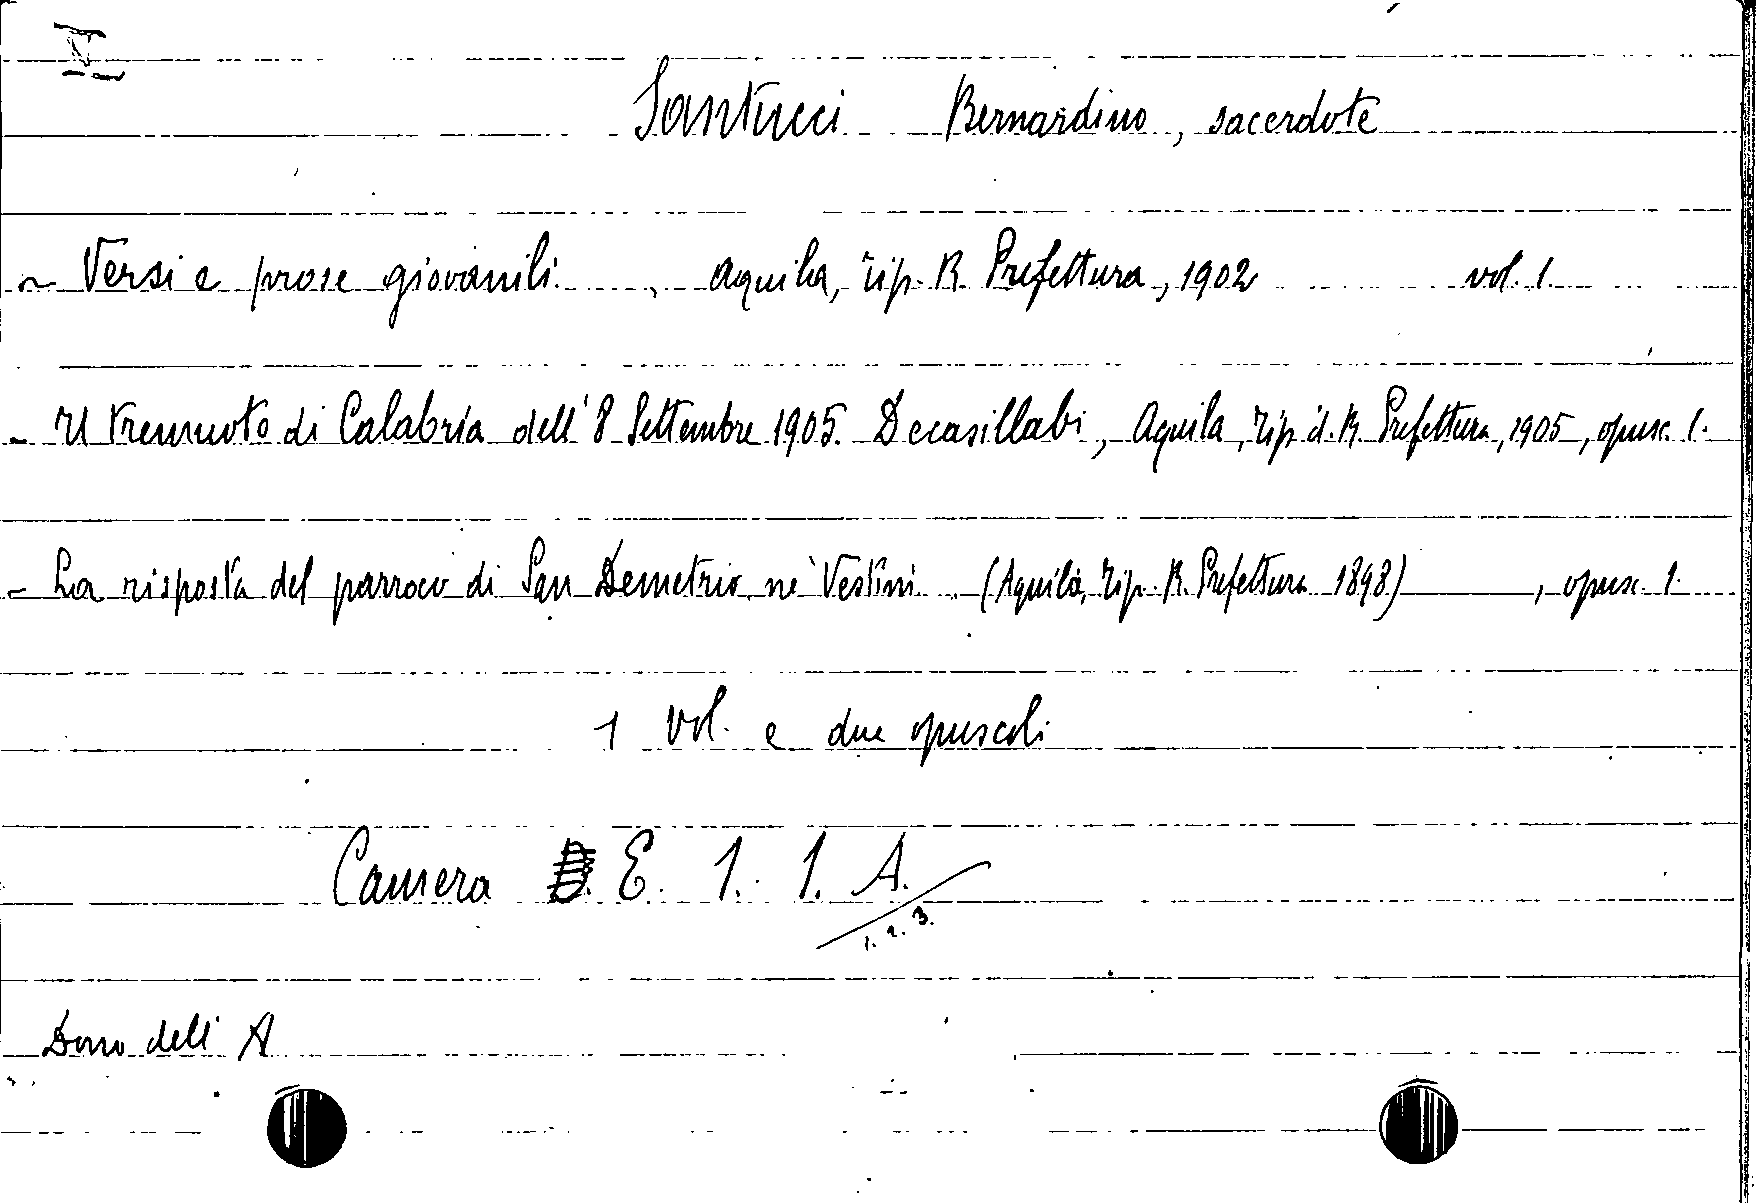 V
Santucci Bernardino, sacerdote
~ Versi e prose giovanili. , Aquila, Tip. R. Prefettura, 1902 vol. 1.
- Il Tremuoto di Calabria dell' 8 Settembre 1905. Decasillabi, Aquila, Tip. d. R. Prefettura, 1905, opusc. 1.
- La risposta del parroco di San Demetrio ne' Vestini (Aquila, Tip. R. Prefettura 1898) , opusc. 1.
1 vol. e due opuscoli
Camera E. 1. 1. A.
1. 2. 3.
Dono dell' A